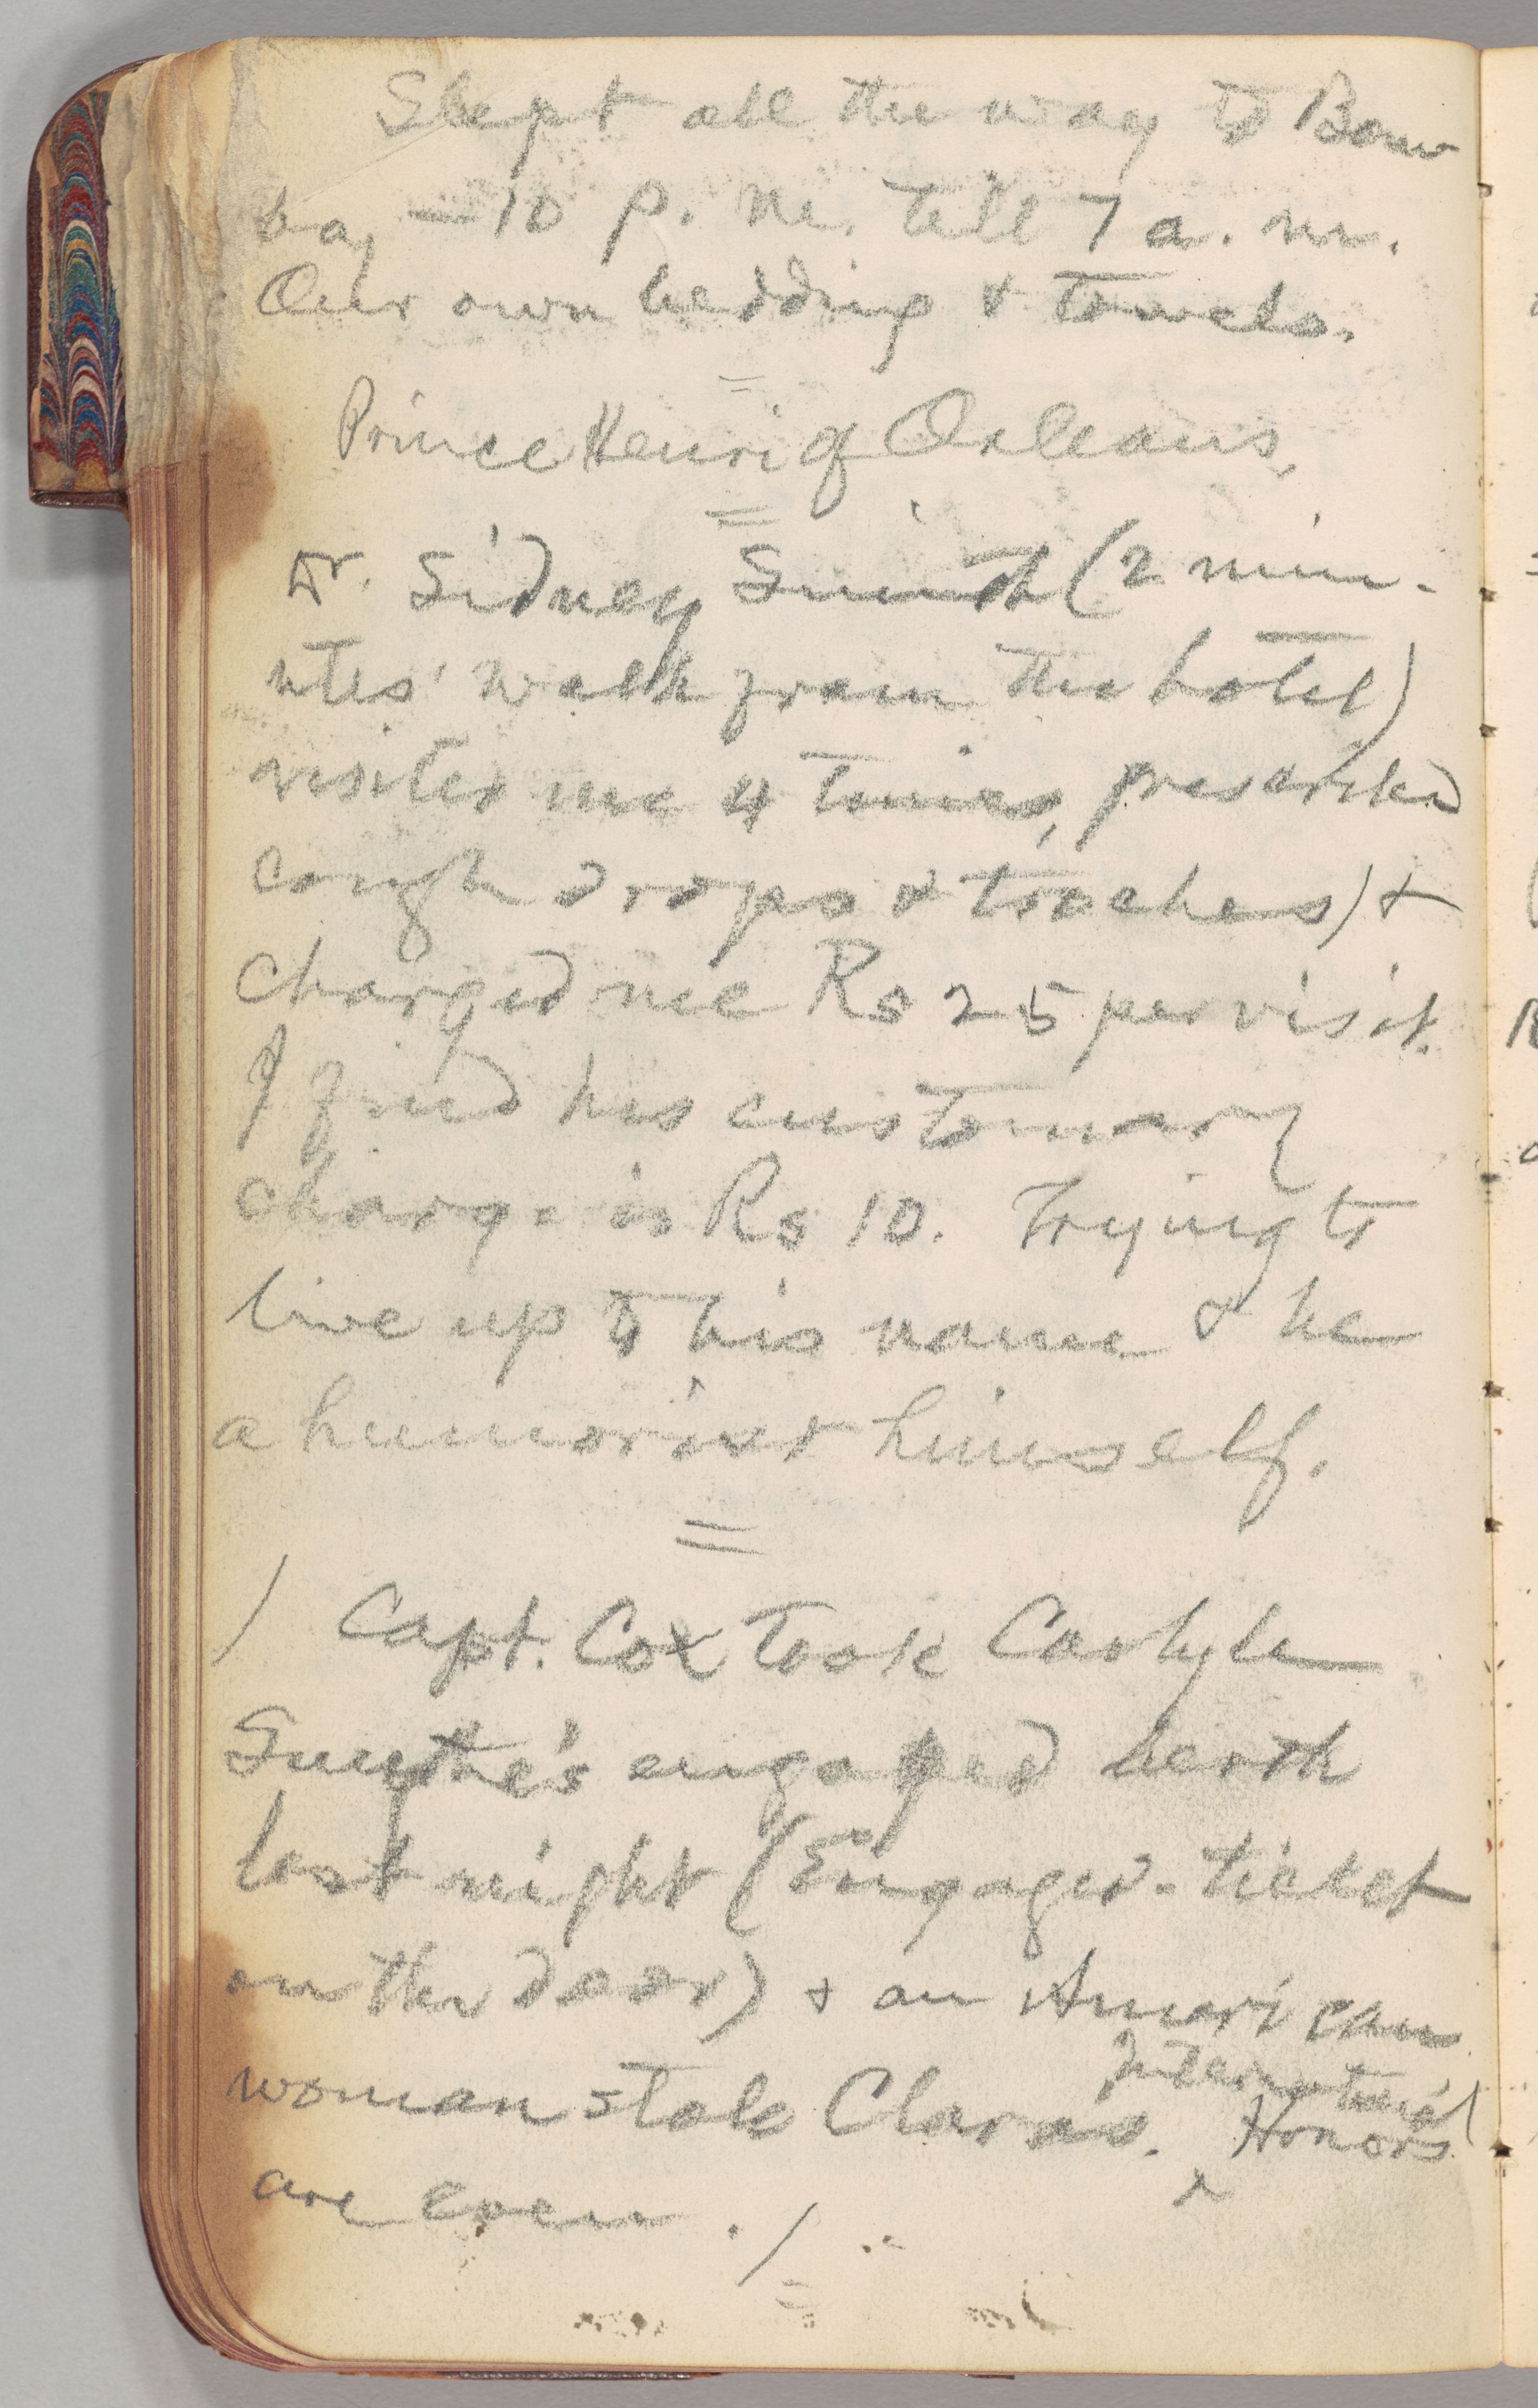 Slept all the way to Bom
bay — 10 p. m. till 7 a. m.
Our own bedding & towels.
=
Prince Henri of Orleans,
=
Dr. Sidney Smith (2 min-
utes' walk from the hotel)
visited me 4 times, prescribed
cough drops & troches, &
charged me Rs 25 per visit.
I find his customary
charge is Rs 10. Trying to
live up to his name & be
a humorist himself.
=
/ Capt. Cox took Carlyle
Smythe's engaged berth
last night (Engaged-ticket
on the door) & an American
International
woman stole Clara's. Honors
^
are even. /
=